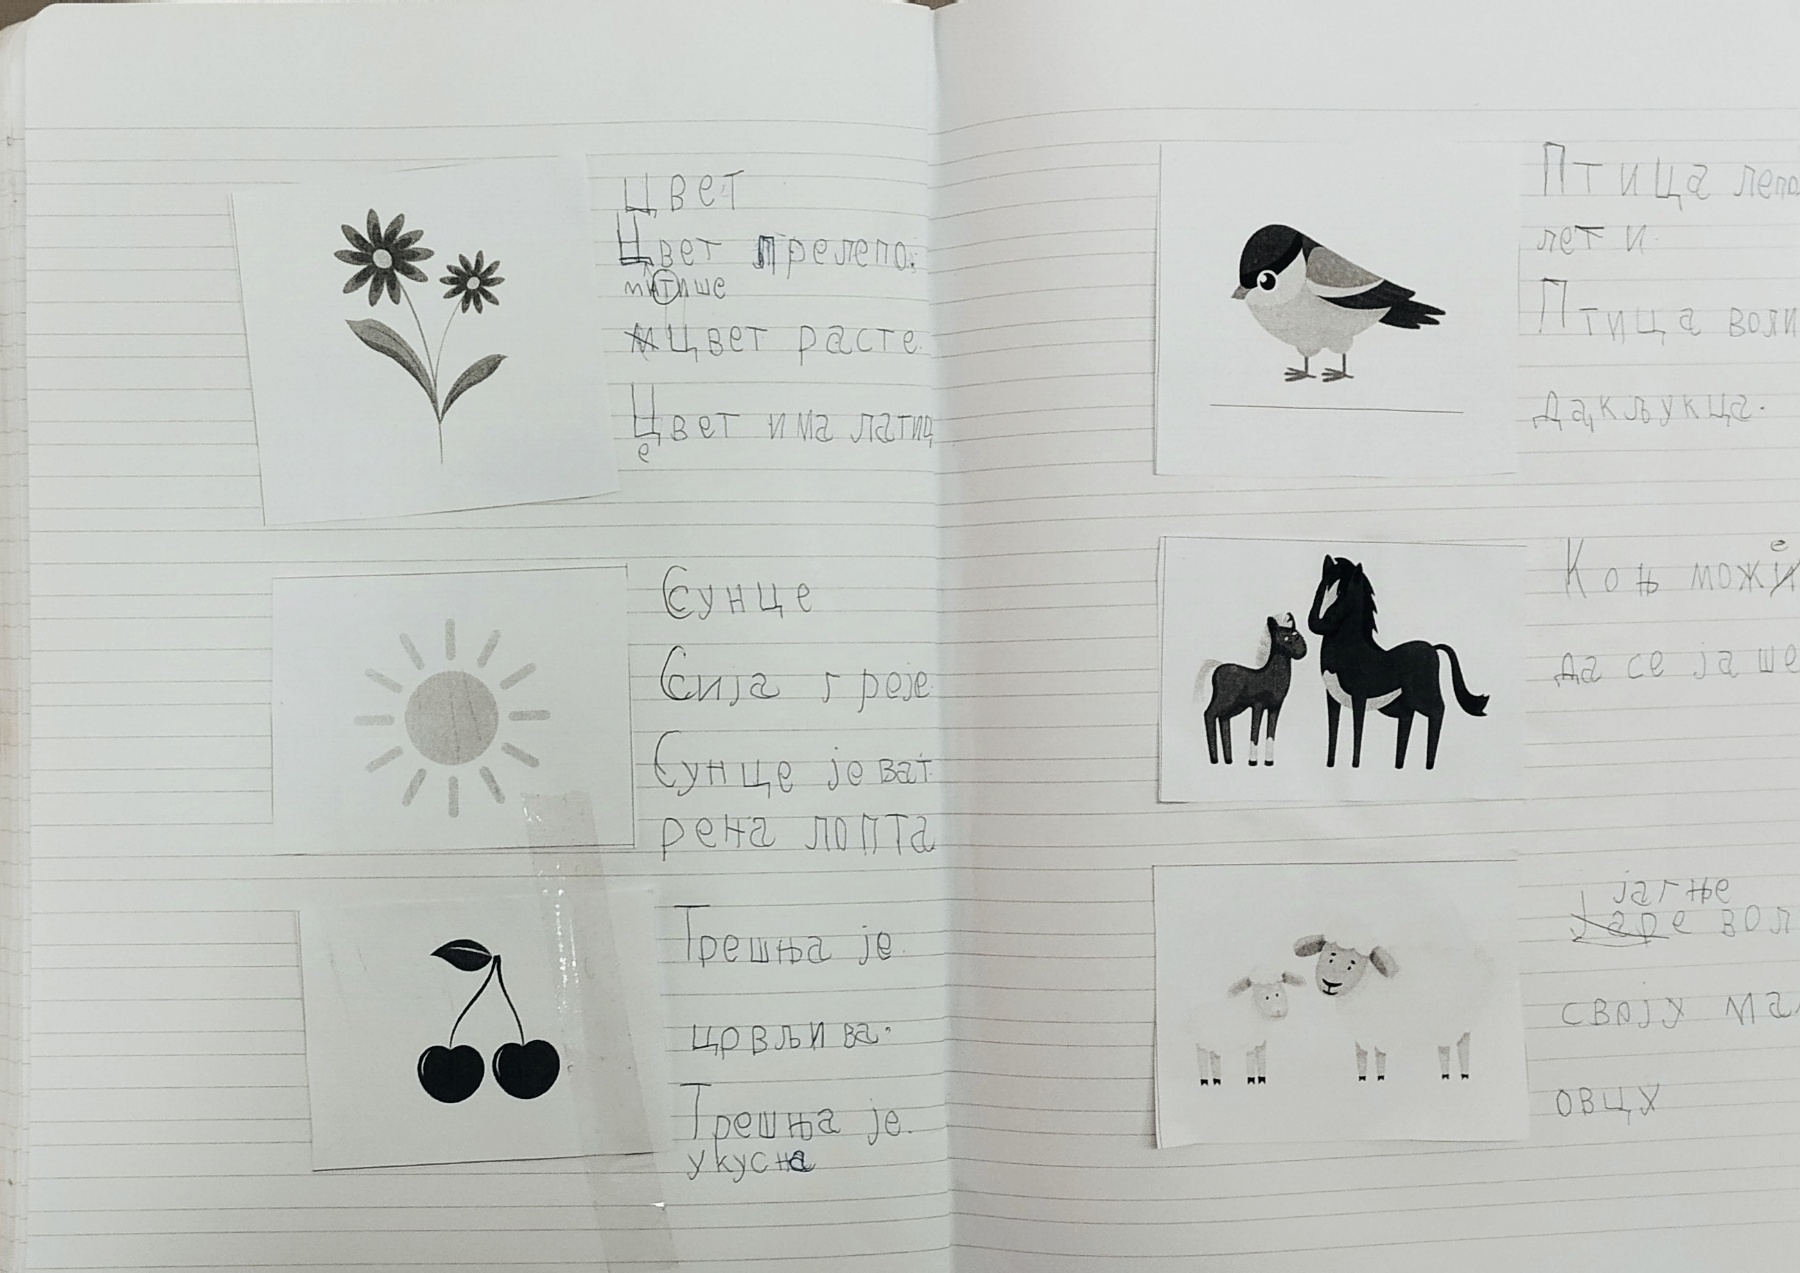 Цвет
Цвет прелепо.
митише
Цвет расте.
Цвет има латиц
е
Сунце
Сија греје.
Сунце је ват
рена лопта
Трешња је.
црвљива.
Трешња је.
укусна
Птица лепо
лети.
Птица воли
да кљукца.
Коњ може
да се јаше
јагње
Јаре вол
своју ма
овцу